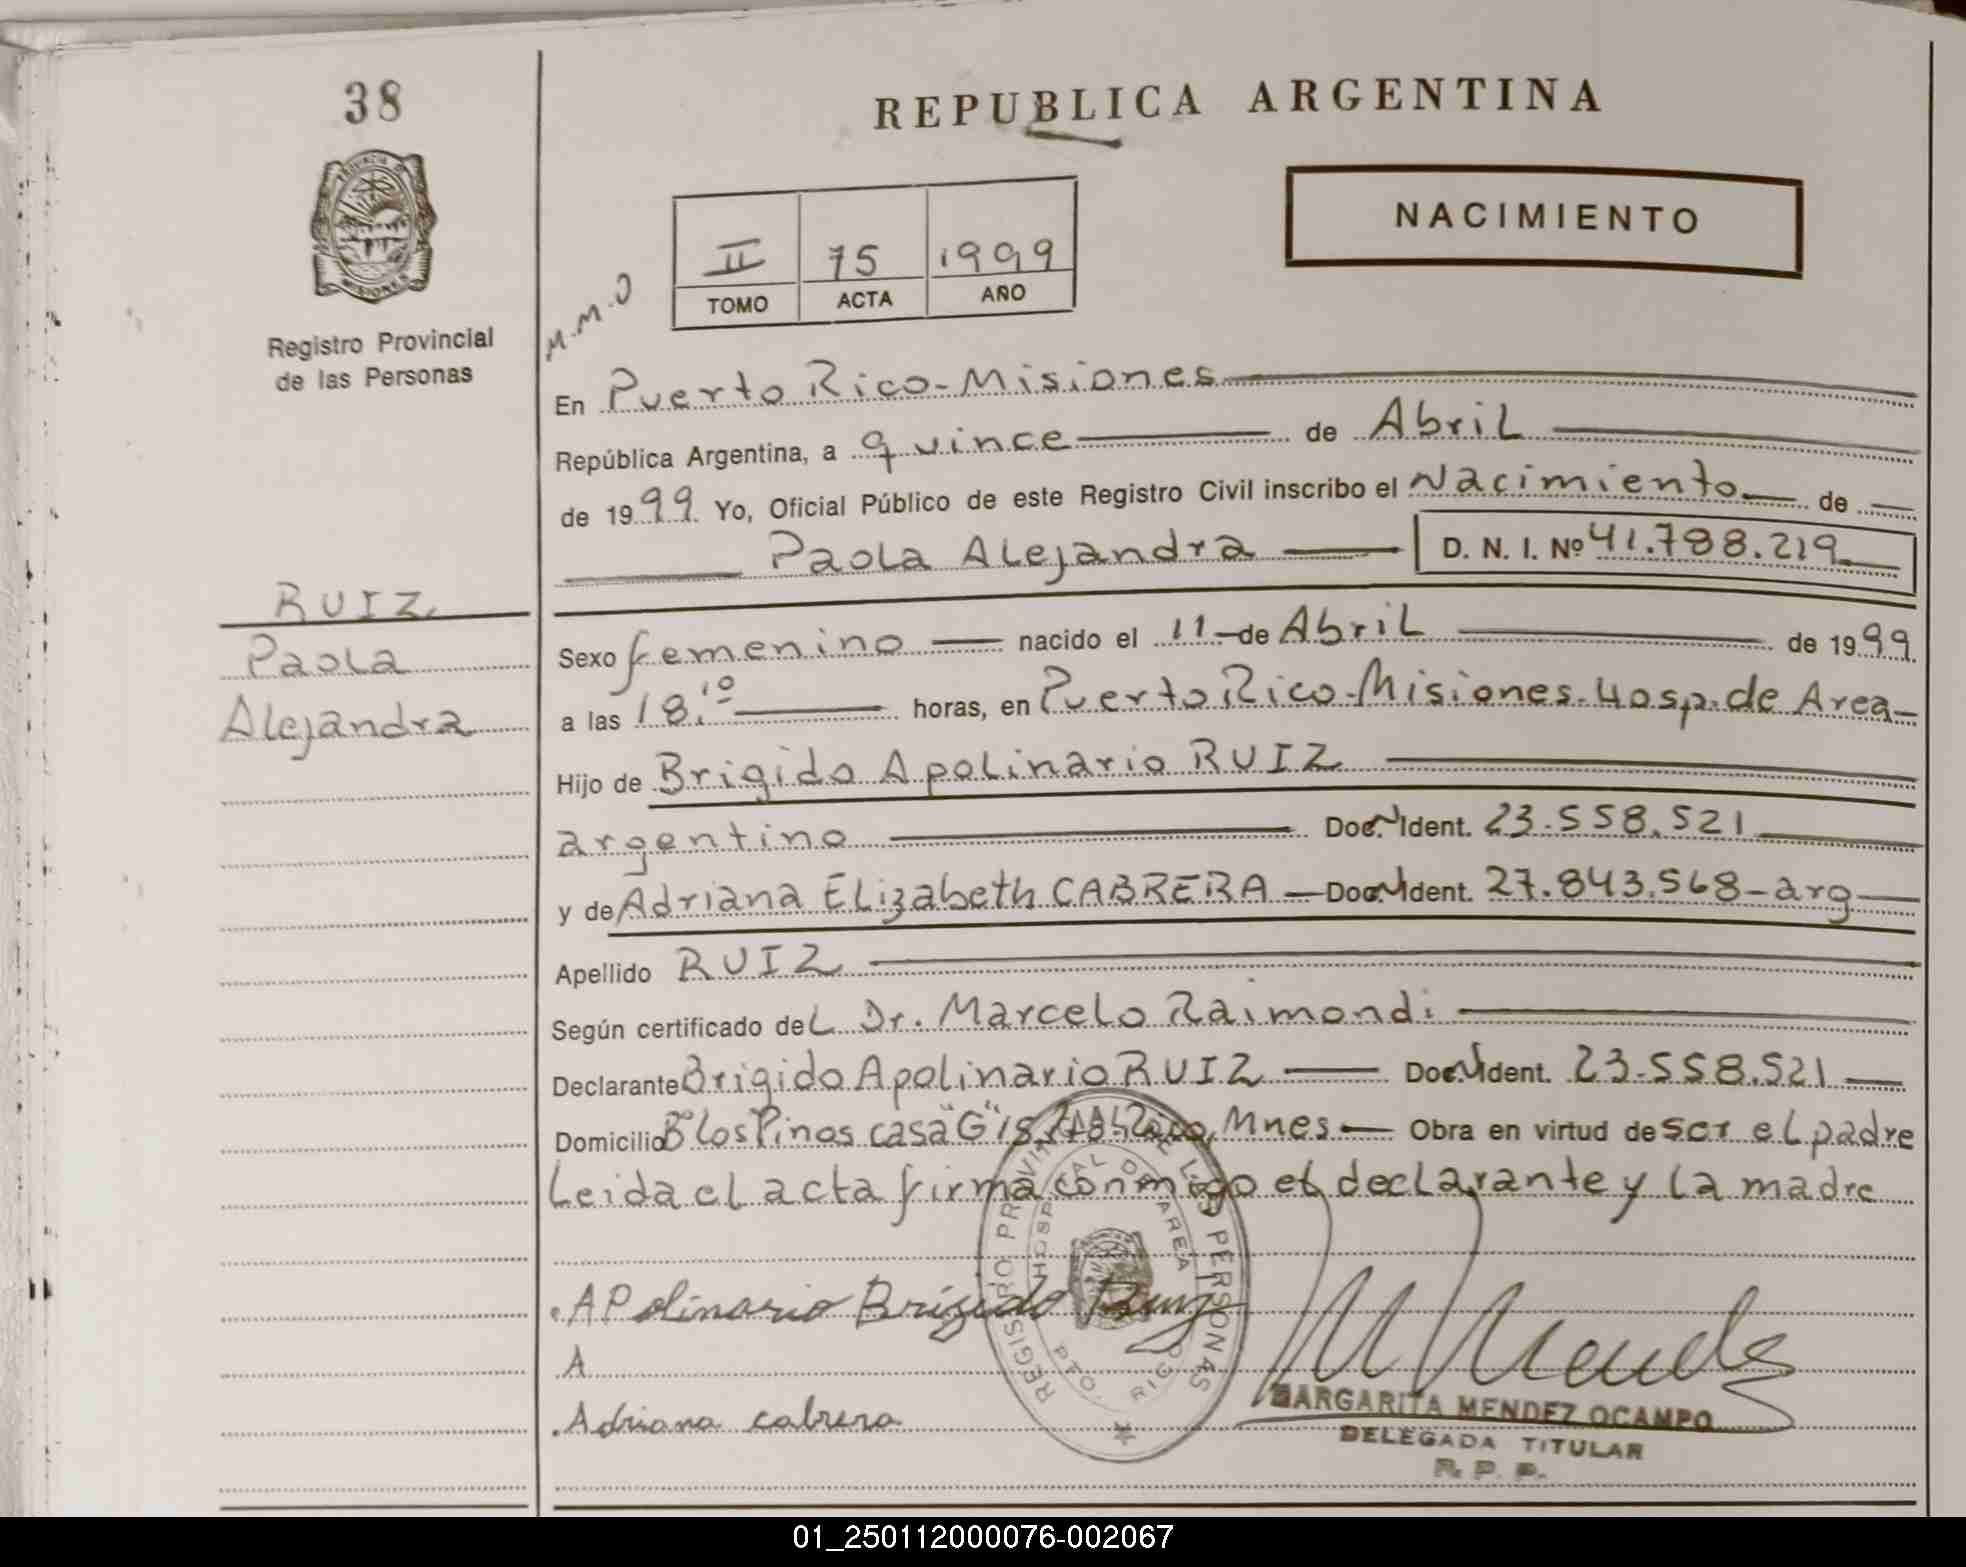 38
REPUBLICA ARGENTINA
NACIMIENTO
II 75 1999
TOMO ACTA AÑO
M.M.O
Registro Provincial
de las Personas
En Puerto Rico-Misiones
República Argentina, a quince de Abril
de 1999 Yo, Oficial Público de este Registro Civil inscribo el Nacimiento de
Paola Alejandra D. N. I. Nº 41.788.219
RUIZ
Paola
Alejandra
Sexo femenino nacido el 11 de Abril de 1999
a las 18.10 horas, en Puerto Rico-Misiones-Hosp. de Area
Hijo de Brigido Apolinario RUIZ
argentino Doc. Ident. 23.558.521
y de Adriana Elizabeth CABRERA Doc. Ident. 27.843.568-arg
Apellido RUIZ
Según certificado del Dr. Marcelo Raimondi
Declarante Brigido Apolinario RUIZ Doc. Ident. 23.558.521
Domicilio Bº Los Pinos casa "G" Rico, Mnes Obra en virtud de ser el padre
Leida el acta firma conmigo el declarante y la madre
REGISTRO PROVINCIAL DE LAS PERSONAS
HOSPITAL DE AREA
PTO. RICO
Apolinario Brigido Ruiz
A
Adriana cabrera
M Mendez
MARGARITA MENDEZ OCAMPO
DELEGADA TITULAR
R. P. P.
01_250112000076-002067